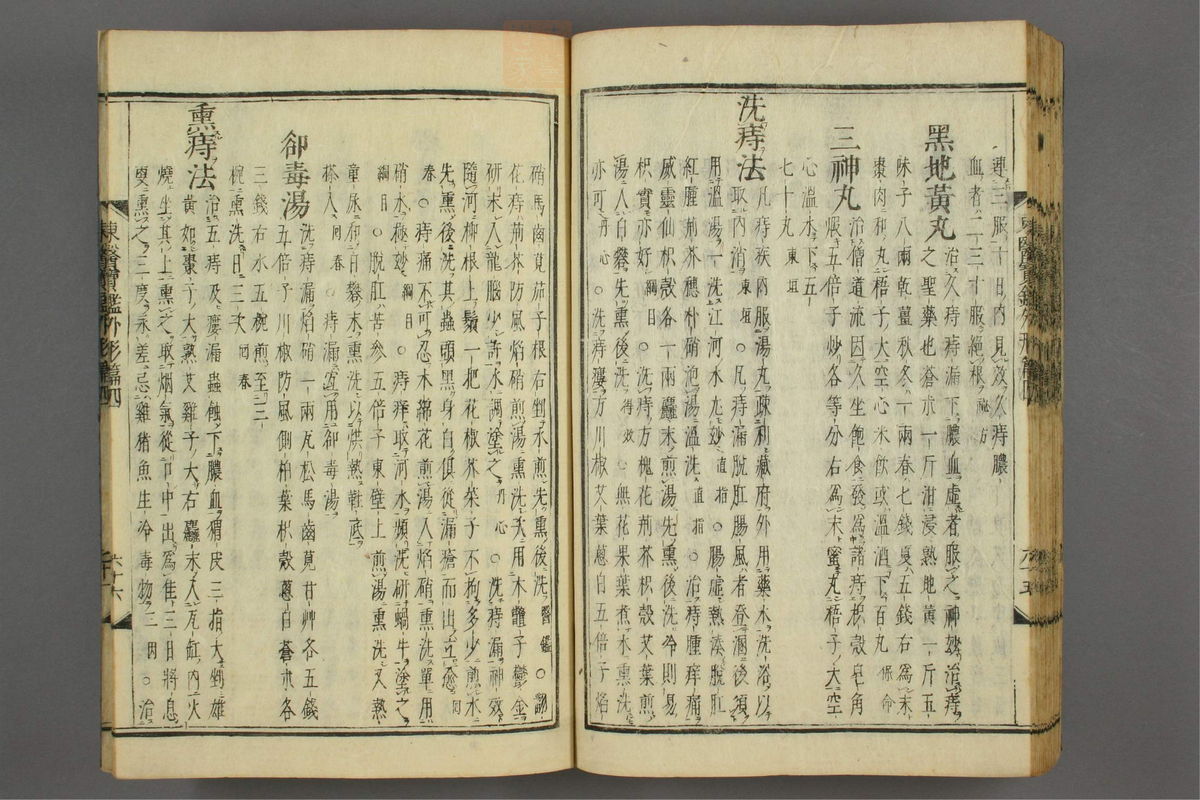 連三服十日內見效久痔膿
血者二三十服絕根秘方
黑地黃丸治久痔痔漏下膿血虛者服之神妙治痔
之聖藥也蒼朮一斤泔浸熟地黃一斤五
味子八兩乾薑秋冬一兩春七錢夏五錢右爲末
棗肉和丸梧子大空心米飮或溫酒下百丸保命
三神丸治僧道流因久坐飽食發爲諸痔枳殼皂角
煆五倍子炒各等分右爲末蜜丸梧子大空
心溫水下五
七十丸東垣
洗痔法凡痔疾內服湯丸疎利藏府外用藥水洗浴以
取內消東垣○凡痔漏脫肛腸風者登溷後須
用溫湯一洗江河水尤妙直指○腸虛熱湊脫肛
紅腫荊芥穗朴硝泡湯溫洗直指○治痔腫痒痛
威靈仙枳殼各一兩麤末煎湯先熏後洗冷則易
枳實亦好綱目○洗痔方槐花荊芥枳殼艾葉煎
湯入白礬先熏後洗得效○無花果葉煮水熏洗
亦可丹心○洗痔瘻方川椒艾葉蔥白五倍子焰
硝馬齒莧茄子根右剉水煎先熏後洗醫鑑○翻
花痔荊芥防風焰硝煎湯熏洗次用木鱉子鬱金
硏末入龍腦少許水調塗之丹心○洗痔漏神效
隨河柳根上鬚一把花椒芥菜子不拘多少煎水
先熏後洗其蟲頭黑身白俱從漏瘡而出立愈回
春○痔痛不可忍木綿花煎湯入焰硝熏洗單用
硝水極妙綱目○痔痒取河水頻洗硏蝸牛塗之
綱目○脫肛苦參五倍子東壁上煎湯熏洗又熱
童尿和白礬末熏洗以烘熱鞋底
揉入回春○痔漏宜用却毒湯
卻毒湯洗痔漏焰硝一兩瓦松馬齒莧甘艸各五錢
五倍子川椒防風側柏葉枳殼蔥白蒼朮各
三錢右水五椀煎至三
椀熏洗日三次回春
熏痔法治五痔及瘻漏蟲蝕下膿血猬皮三指大剉雄
黃如棗子大熟艾雞子大右麤末入瓦缸內火
燒坐其上熏之取烟氣從口中出爲佳三日將息
更熏之三度永差忌雞猪魚生冷毒物三因○治
東醫寶鑑外形篇四
六十六